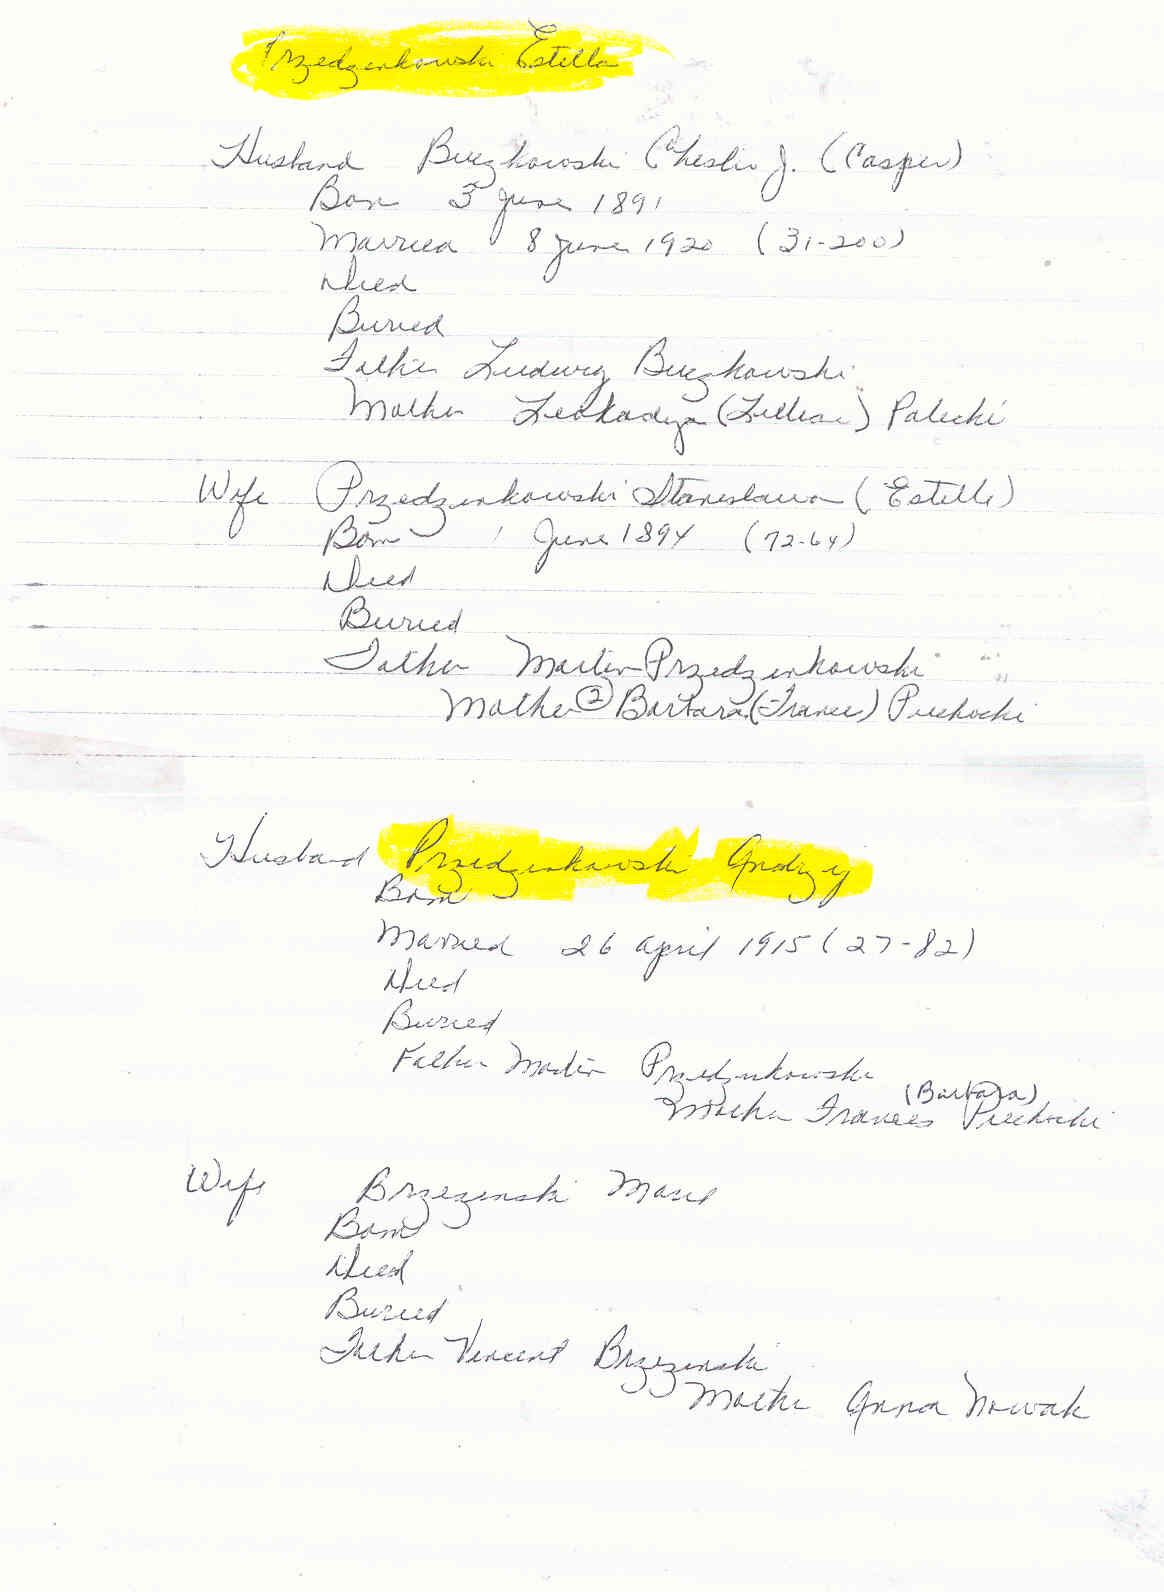 Przedzenkowski Estella
Husband Buczkowski Cheslir J. (Casper)
Born 3 June 1891
Married 8 June 1920 (31-200)
Died
Buried
Father Ludwig Buczkowski
Mother Leokadya (Lillian) Palecki
Wife Przedzenkowski Stanislawa (Estelle)
Born 1 June 1894 (72-64)
Died
Buried
Father Martin Przedzenkowski
Mother ② Barbara (Frances) Piechocki
Husband Przedzenkowski Andrzej
Born
Married 26 April 1915 (27-82)
Died
Buried
Father Martin Przedzenkowski
(Barbara)
Mother Frances Piechocki
Wife Brzezinski Marie
Born
Died
Buried
Father Vincent Brzezinski
Mother Anna Nowak